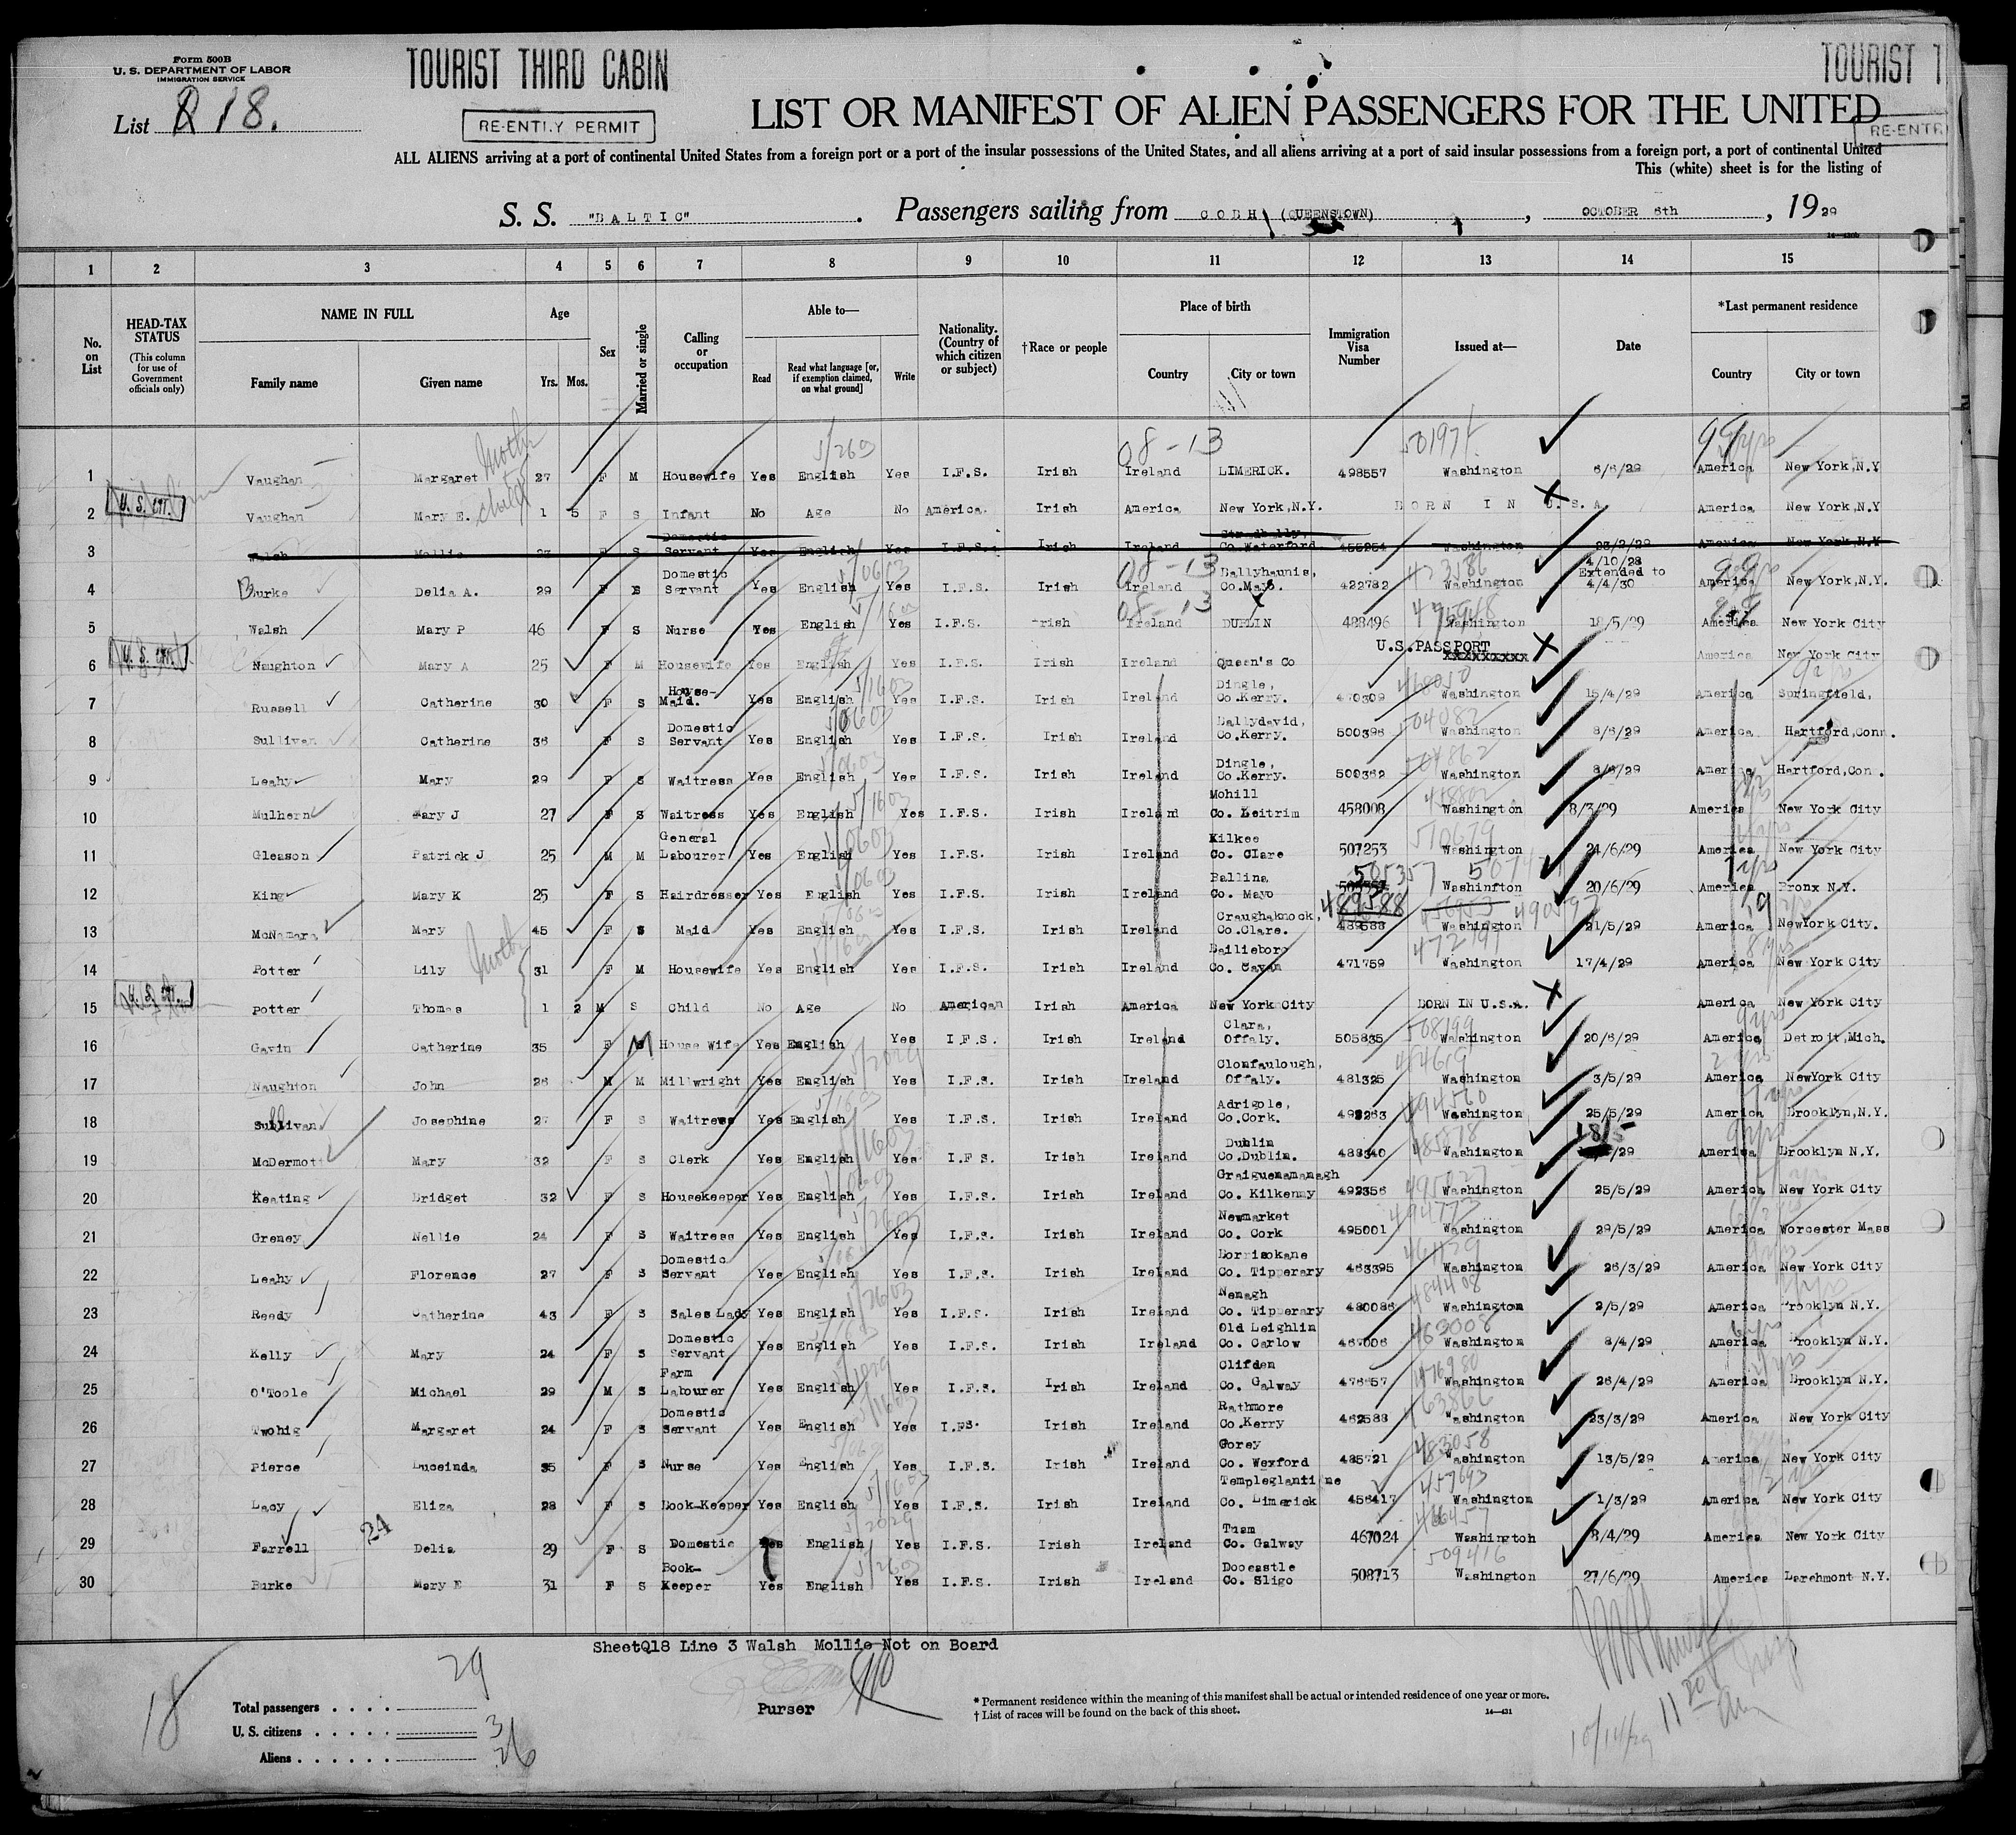 Form 500B
U. S. DEPARTMENT OF LABOR
IMMIGRATION SERVICE
TOURIST THIRD CABIN
TOURIST T
List Q 18.
RE-ENTRY PERMIT
LIST OR MANIFEST OF ALIEN PASSENGERS FOR THE UNITED
RE-ENTR
ALL ALIENS arriving at a port of continental United States from a foreign port or a port of the insular possessions of the United States, and all aliens arriving at a port of said insular possessions from a foreign port, a port of continental United
This (white) sheet is for the listing of
S. S. "BALTIC" . Passengers sailing from COBH (QUEENSTOWN) , OCTOBER 6th , 1929
1 2 3 4 5 6 7 8 9 10 11 12 13 14 15
No. on List
HEAD-TAX STATUS (This column for use of Government officials only)
NAME IN FULL Family name Given name
Age Yrs. Mos.
Sex
Married or single
Calling or occupation
Able to— Read Read what language [or, if exemption claimed, on what ground] Write
Nationality. (Country of which citizen or subject)
†Race or people
Place of birth Country City or town
Immigration Visa Number
Issued at—
Date
*Last permanent residence Country City or town
1 Vaughan Margaret Mother 27 F M Housewife Yes English Yes I.F.S. Irish Ireland LIMERICK. 498557 Washington 6/6/29 America New York,N.Y
2 U.S. CIT. Vaughan Mary E. 1 5 F S Infant No Age No America. Irish America New York,N.Y. BORN IN U.S.A America New York,N.Y
3 Walsh Mollie 27 F S Domestic Servant Yes English Yes I.F.S. Irish Ireland Stradbally, Co.Waterford. 455254 Washington 23/2/29 America New York,N.Y
4 Burke Delia A. 29 F S Domestic Servant Yes English Yes I.F.S. Irish Ireland Ballyhaunis, Co.Mayo. 422782 Washington 4/10/28 Extended to 4/4/30 America New York,N.Y.
5 Walsh Mary P 46 F S Nurse Yes English Yes I.F.S. Irish Ireland DUBLIN 488496 Washington 18/5/29 America New York City
6 U.S. CIT. Naughton Mary A 25 F M Housewife Yes English Yes I.F.S. Irish Ireland Queen's Co U.S.PASSPORT XXXXXXXXX America New York City
7 Russell Catherine 30 F S House-Maid. Yes English Yes I.F.S. Irish Ireland Dingle, Co.Kerry. 470309 Washington 15/4/29 America Springfield,
8 Sullivan Catherine 36 F S Domestic Servant Yes English Yes I.F.S. Irish Ireland Ballydavid, Co.Kerry. 500396 Washington 8/6/29 America Hartford,Conn.
9 Leahy Mary 29 F S Waitress Yes English Yes I.F.S. Irish Ireland Dingle, Co.Kerry. 500362 Washington 8/6/29 America Hartford,Con.
10 Mulhern Mary J 27 F S Waitress Yes English Yes I.F.S. Irish Ireland Mohill Co. Leitrim 458008 Washington 8/3/29 America New York City
11 Gleason Patrick J 25 M M General Labourer Yes English Yes I.F.S. Irish Ireland Kilkee Co. Clare 507253 Washington 24/6/29 America New York City
12 King Mary K 25 F S Hairdresser Yes English Yes I.F.S. Irish Ireland Ballina Co. Mayo 505357 Washinfton 20/6/29 America Bronx N.Y.
13 McNamara Mary 45 F S Maid Yes English Yes I.F.S. Irish Ireland Craughaknock, Co.Clare. 489588 Washington 21/5/29 America NewYork City.
14 Potter Lily Mother 31 F M Housewife Yes English Yes I.F.S. Irish Ireland Bailieboro Co. Cavan 471759 Washington 17/4/29 America New York City
15 U.S. CIT. Potter Thomas 1 2 M S Child No Age No American Irish America New York City BORN IN U.S.A. America New York City
16 Gavin Catherine 35 F M House Wife Yes English Yes I.F.S. Irish Ireland Clara, Offaly. 505835 Washington 20/6/29 America Detroit,Mich.
17 Naughton John 26 M M Millwright Yes English Yes I.F.S. Irish Ireland Clonfaulough, Offaly. 481325 Washington 3/5/29 America NewYork City
18 Sullivan Josephine 27 F S Waitress Yes English Yes I.F.S. Irish Ireland Adrigole, Co.Cork. 492263 Washington 25/5/29 America Brooklyn,N.Y.
19 McDermott Mary 32 F S Clerk Yes English Yes I.F.S. Irish Ireland Dublin Co.Dublin. 488340 Washington 18/5 /29 America Brooklyn N.Y.
20 Keating Bridget 32 F S Housekeeper Yes English Yes I.F.S. Irish Ireland Graiguenamanagh Co. Kilkenny 492356 Washington 25/5/29 America New York City
21 Greney Nellie 24 F S Waitress Yes English Yes I.F.S. Irish Ireland Newmarket Co. Cork 495001 Washington 29/5/29 America Worcester Mass
22 Leahy Florence 27 F S Domestic Servant Yes English Yes I.F.S. Irish Ireland Borrisokane Co. Tipperary 463395 Washington 26/3/29 America New York City
23 Reedy Catherine 43 F S Sales Lady Yes English Yes I.F.S. Irish Ireland Nenagh Co. Tipperary 480086 Washington 2/5/29 America Brooklyn N.Y.
24 Kelly Mary 24 F S Domestic Servant Yes English Yes I.F.S. Irish Ireland Old Leighlin Co. Carlow 467006 Washington 8/4/29 America Brooklyn N.Y.
25 O'Toole Michael 29 M S Farm Labourer Yes English Yes I.F.S. Irish Ireland Clifden Co. Galway 476657 Washington 26/4/29 America Brooklyn N.Y.
26 Twohig Margaret 24 F S Domestic Servant Yes English Yes I.FS. Irish Ireland Rathmore Co.Kerry 462588 Washington 23/3/29 America New York City
27 Pierce Luceinda 35 F S Nurse Yes English Yes I.F.S. Irish Ireland Gorey Co. Wexford 485721 Washington 13/5/29 America New York City
28 Lacy Eliza 28 F S Book-Keeper Yes English Yes I.F.S. Irish Ireland Templeglantine Co. Limerick 456417 Washington 1/3/29 America New York City
29 Farrell 24 Delia 29 F S Domestic Yes English Yes I.F.S. Irish Ireland Tuam Co. Galway 467024 Washington 8/4/29 America New York City
30 Burke Mary E 31 F S Book-Keeper Yes English Yes I.F.S. Irish Ireland Doocastle Co. Sligo 508713 Washington 27/6/29 America Larchmont N.Y.
SheetQ18 Line 3 Walsh Mollie Not on Board
18
Total passengers . . . . 29
U. S. citizens . . . . . 3
Aliens . . . . . . 26
Purser
* Permanent residence within the meaning of this manifest shall be actual or intended residence of one year or more.
† List of races will be found on the back of this sheet.
14—431
10/14/29